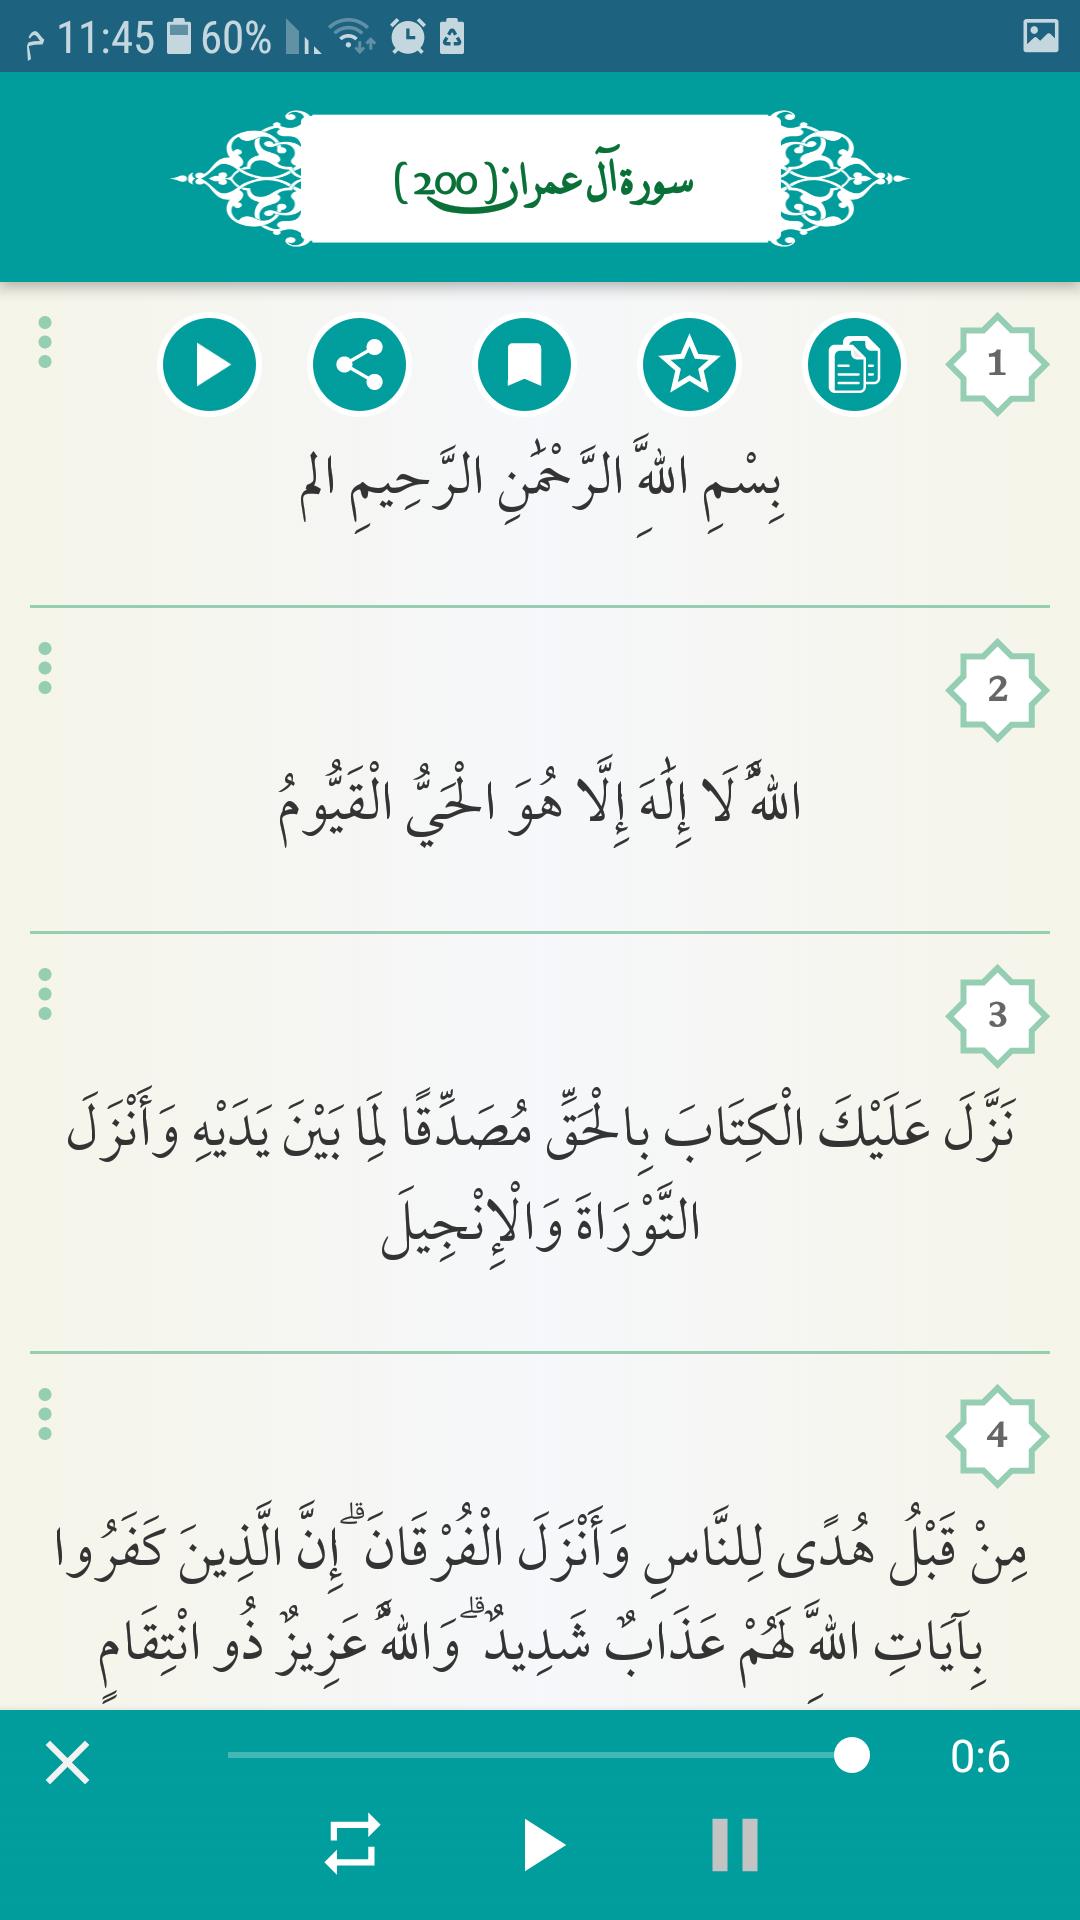 م 11:45 60%
سورة آل عمران (200)
1
بِسْمِ اللَّهِ الرَّحْمَٰنِ الرَّحِيمِ الم
2
اللَّهُ لَا إِلَٰهَ إِلَّا هُوَ الْحَيُّ الْقَيُّومُ
3
نَزَّلَ عَلَيْكَ الْكِتَابَ بِالْحَقِّ مُصَدِّقًا لِمَا بَيْنَ يَدَيْهِ وَأَنْزَلَ
التَّوْرَاةَ وَالْإِنْجِيلَ
4
مِنْ قَبْلُ هُدًى لِلنَّاسِ وَأَنْزَلَ الْفُرْقَانَ ۗ إِنَّ الَّذِينَ كَفَرُوا
بِآيَاتِ اللَّهِ لَهُمْ عَذَابٌ شَدِيدٌ ۗ وَاللَّهُ عَزِيزٌ ذُو انْتِقَامٍ
0:6